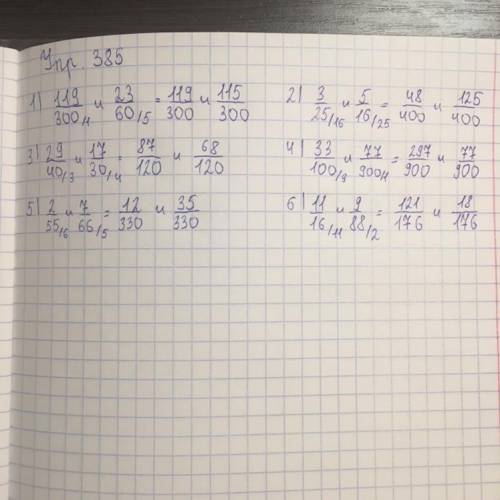 Упр. 385
1) 119/300 /1 и 23/60 /5 = 119/300 и 115/300
2) 3/25 /16 и 5/16 /25 = 48/400 и 125/400
3) 29/40 /3 и 17/30 /4 = 87/120 и 68/120
4) 33/100 /9 и 77/900 /1 = 297/900 и 77/900
5) 2/55 /6 и 7/66 /5 = 12/330 и 35/330
6) 11/16 /11 и 9/88 /2 = 121/176 и 18/176